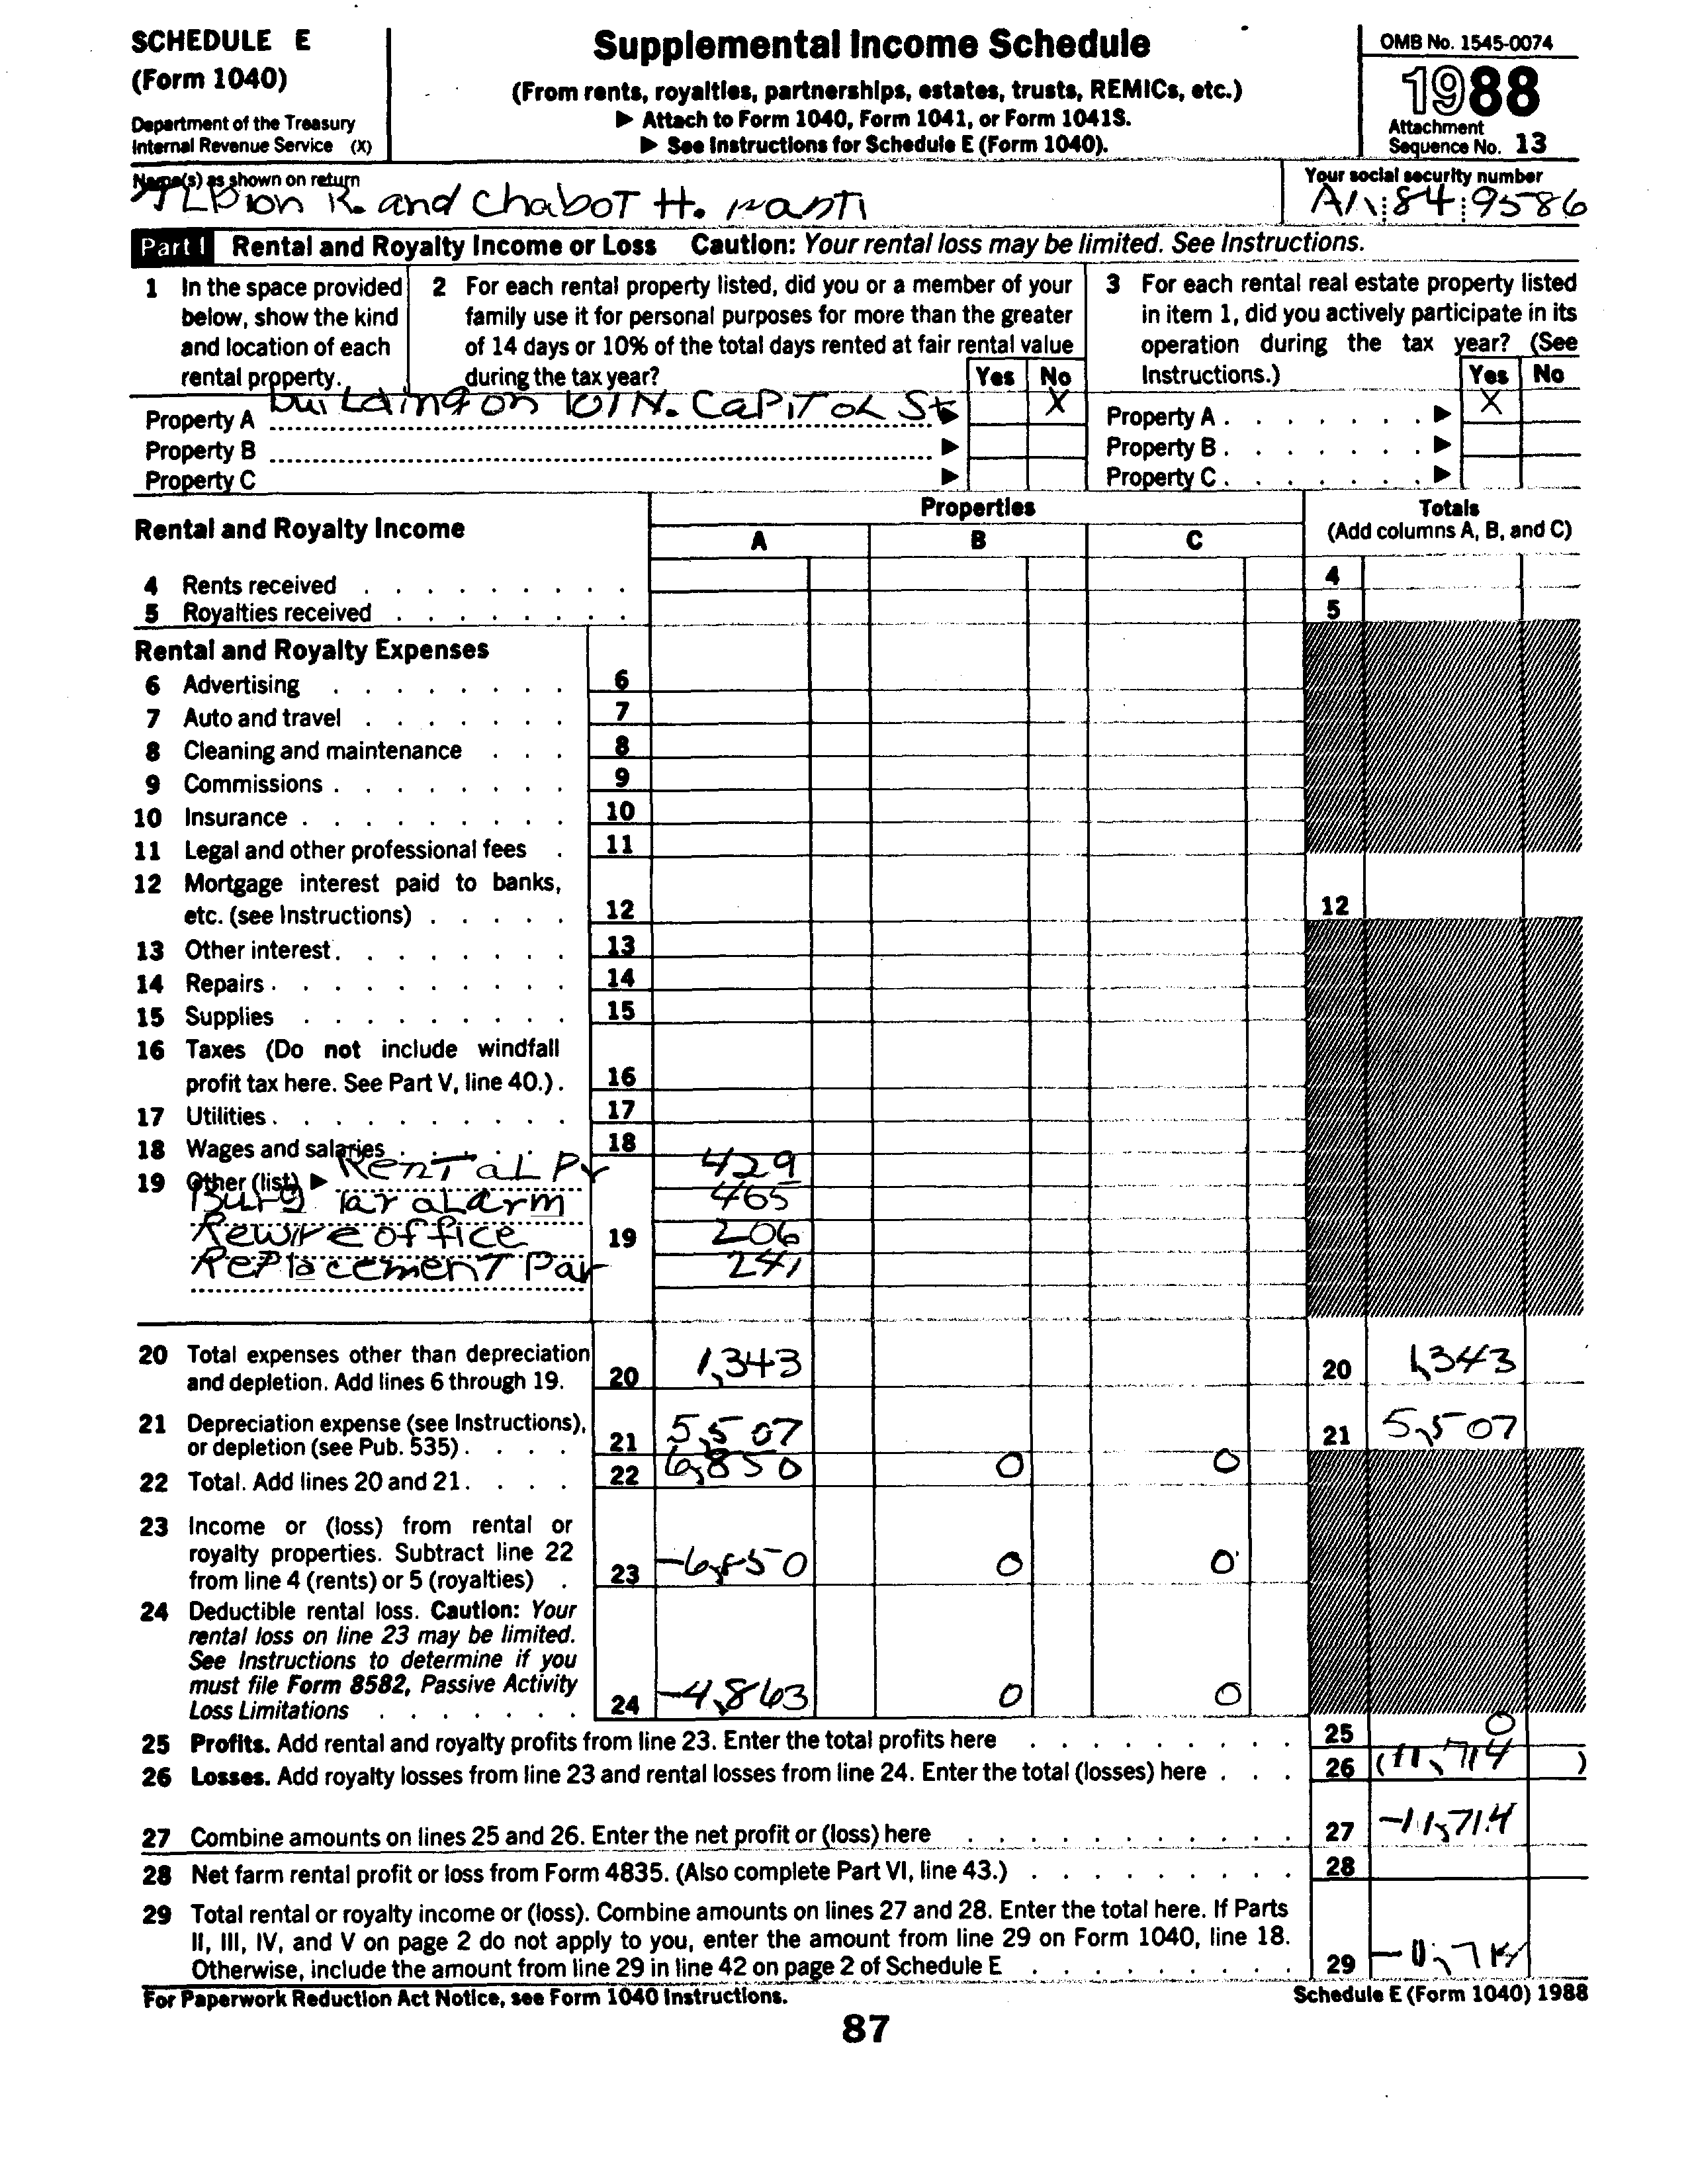 SCHEDULE E
(Form 1040)
Department of the Treasury
Internal Revenue Service (X)
Supplemental Income Schedule
(From rents, royalties, partnerships, estates, trusts, REMICs, etc.)
▶ Attach to Form 1040, Form 1041, or Form 1041S.
▶ See Instructions for Schedule E (Form 1040).
OMB No. 1545-0074
1988
Attachment
Sequence No. 13
Name(s) as shown on return
R. and Chabot H.
Your social security number
84 9586
Part I Rental and Royalty Income or Loss Caution: Your rental loss may be limited. See Instructions.
1 In the space provided
below, show the kind
and location of each
rental property.
2 For each rental property listed, did you or a member of your
family use it for personal purposes for more than the greater
of 14 days or 10% of the total days rented at fair rental value
during the tax year? Yes No
3 For each rental real estate property listed
in item 1, did you actively participate in its
operation during the tax year? (See
Instructions.) Yes No
Property A building on 101 N. CaPiTOL St ▶ X
Property B ▶
Property C ▶
Property A ▶ X
Property B ▶
Property C ▶
Rental and Royalty Income
Properties
A B C
Totals
(Add columns A, B, and C)
4 Rents received 4
5 Royalties received 5
Rental and Royalty Expenses
6 Advertising 6
7 Auto and travel 7
8 Cleaning and maintenance 8
9 Commissions 9
10 Insurance 10
11 Legal and other professional fees 11
12 Mortgage interest paid to banks,
etc. (see Instructions) 12 12
13 Other interest 13
14 Repairs 14
15 Supplies 15
16 Taxes (Do not include windfall
profit tax here. See Part V, line 40.) 16
17 Utilities 17
18 Wages and salaries 18
19 Other (list) ▶ RenTaL Pr 429
Burg lar aLarm 465
Rewire office 19 206
RePlacemenT Par 241
20 Total expenses other than depreciation
and depletion. Add lines 6 through 19. 20 1,343 20 1,343
21 Depreciation expense (see Instructions),
or depletion (see Pub. 535) 21 5,507 21 5,507
22 Total. Add lines 20 and 21. 22 6,850 0 0
23 Income or (loss) from rental or
royalty properties. Subtract line 22
from line 4 (rents) or 5 (royalties) 23 -6,850 0 0
24 Deductible rental loss. Caution: Your
rental loss on line 23 may be limited.
See Instructions to determine if you
must file Form 8582, Passive Activity
Loss Limitations 24 -4,863 0 0
25 Profits. Add rental and royalty profits from line 23. Enter the total profits here 25 0
26 Losses. Add royalty losses from line 23 and rental losses from line 24. Enter the total (losses) here 26 (11,714)
27 Combine amounts on lines 25 and 26. Enter the net profit or (loss) here 27 -11,714
28 Net farm rental profit or loss from Form 4835. (Also complete Part VI, line 43.) 28
29 Total rental or royalty income or (loss). Combine amounts on lines 27 and 28. Enter the total here. If Parts
II, III, IV, and V on page 2 do not apply to you, enter the amount from line 29 on Form 1040, line 18.
Otherwise, include the amount from line 29 in line 42 on page 2 of Schedule E 29 -11,714
For Paperwork Reduction Act Notice, see Form 1040 Instructions.
Schedule E (Form 1040) 1988
87